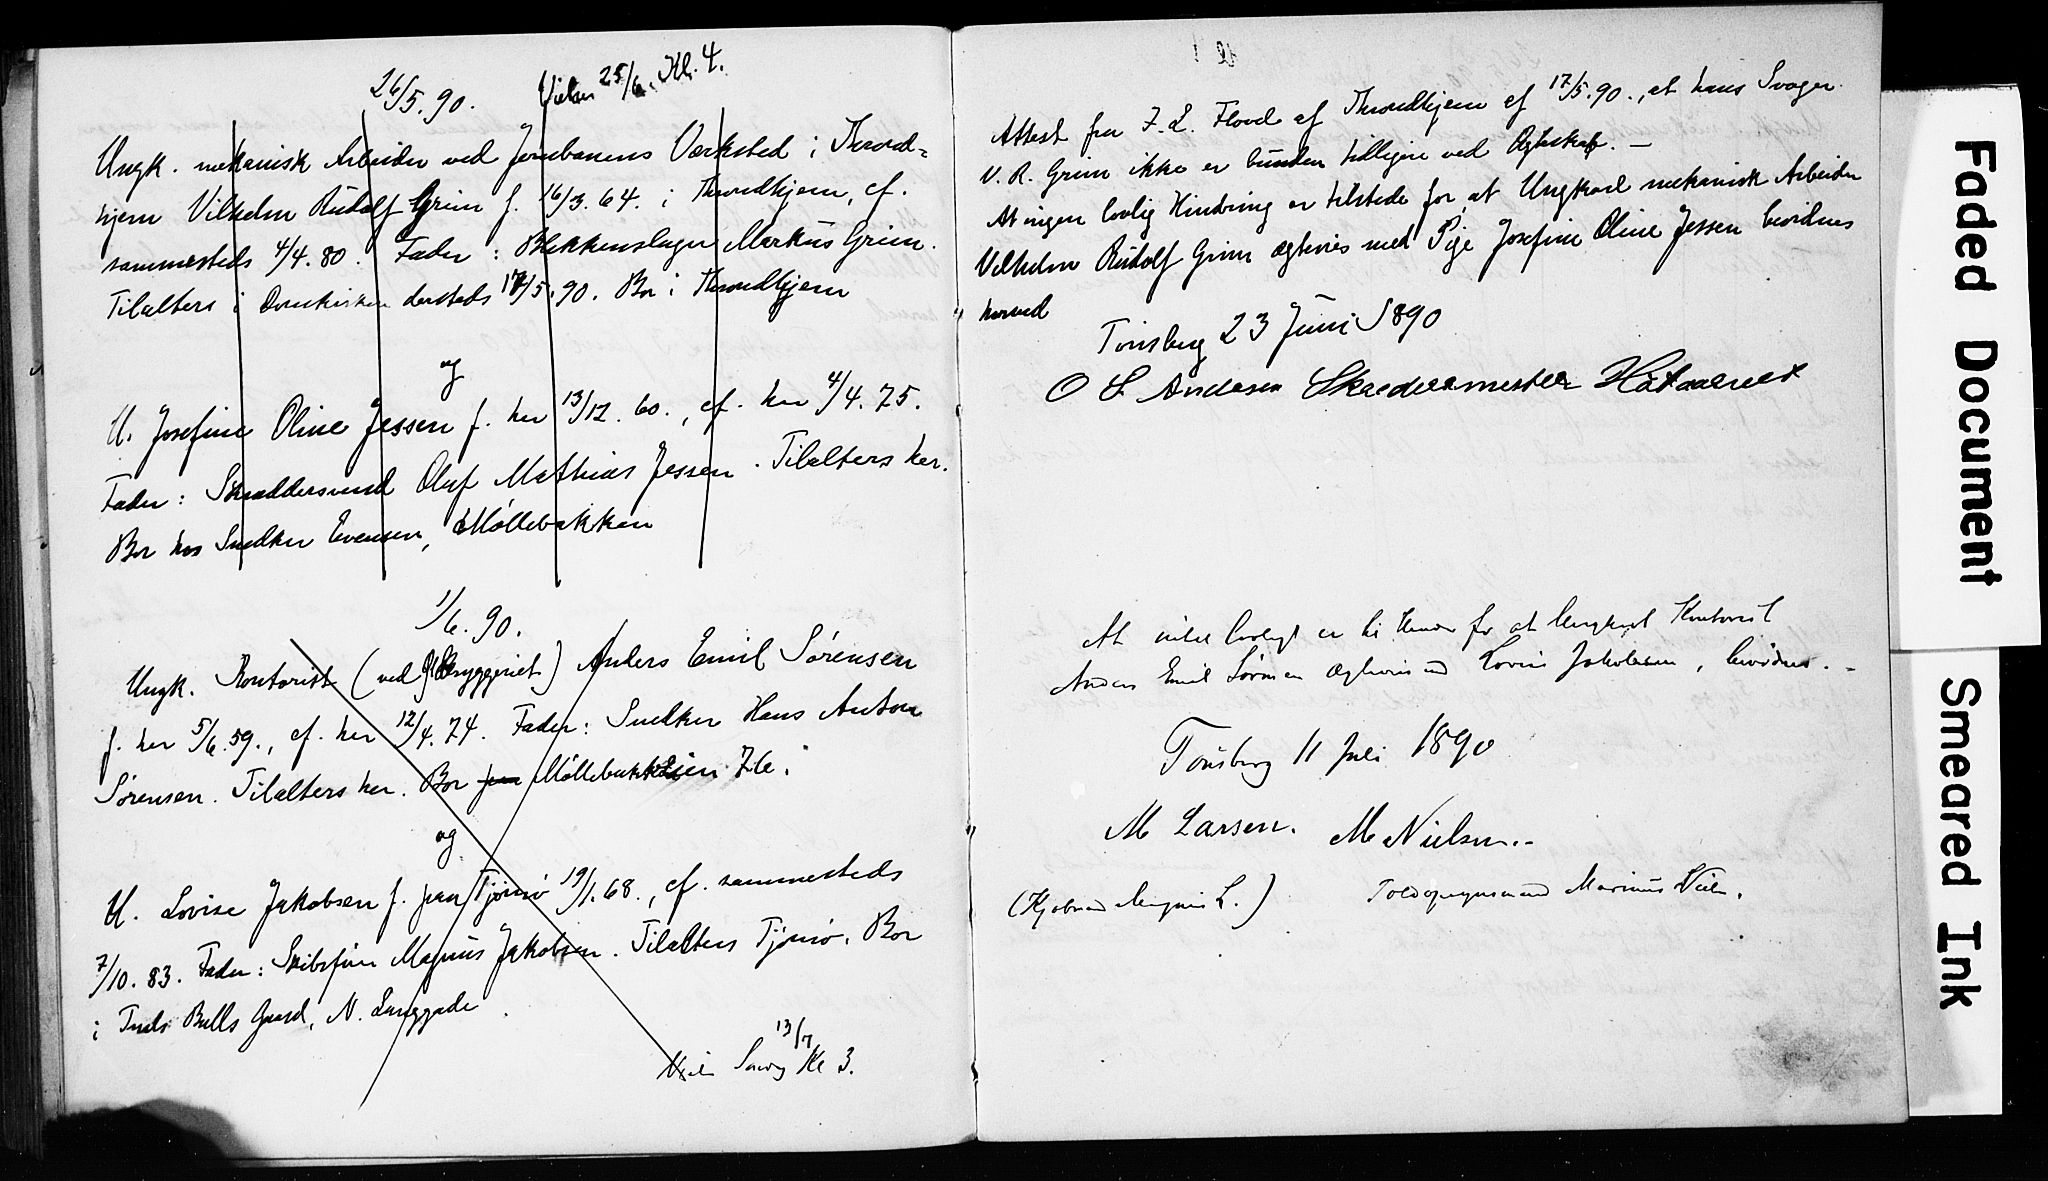 26/5.90. Vielse 25/6. Kl. 4.
Ungk. mekanisk Arbeider ved Jernbanens Værksted i Thrond=
hjem Vilhelm Rudolf Grim f. 16/3.64. i Throndhjem, cf.
sammesteds 4/4.80. Fader: Blikkenslager Markus Grim.
Tilalters i Domkirken dersteds 17/5.90. Bor i Throndhjem
og
U. Josefine Oline Jessen f. her 13/12.60., cf. her 4/4.75.
Fader: Skræddersvend Oluf Mathias Jessen. Tilalters her.
Bor hos Snedker Evensen, Møllebakken
1/6.90.
Ungk. Kontorist (ved Bryggeriet) Anders Emil Sørensen
f. her 5/6.59., cf. her 12/4.74. Fader: Snedker Hans Anton
Sørensen. Tilalters her. Bor paa Møllebakken 76.
og
U. Lovise Jakobsen f. paa Tjømø 19/1.68., cf. sammesteds
7/10.83. Fader: Skibsfører Magnus Jakobsen. Tilalters Tjømø. Bor
i Bulls Gaard, N. Langgade.
13/7 Kl 3.
Attest fra F. L. Flood af Throndhjem af 17/5.90., at hans Svoger
V. R. Grim ikke er bunden tidligere ved Ægteskab. —
At ingen lovlig Hindring er tilstede for, at Ungkarl mekanisk Arbeider
Vilhelm Rudolf Grim ægtevies med Pige Josefine Oline Jessen bevidnes
herved
Tønsberg 23 Juni 1890
O L Andersen Skreddermester
At intet lovligt er til Hinder for at Ungkarl Kontorist
Anders Emil Sørensen ægtevies med Lovise Jakobsen, bevidnes. -
Tønsberg 11 Juli 1890
M Larsen. M Nielsen.-
(Kjøbmand Magnus L.) Toldopsynsmand Marinus Niels.
Faded Document
Smeared Ink